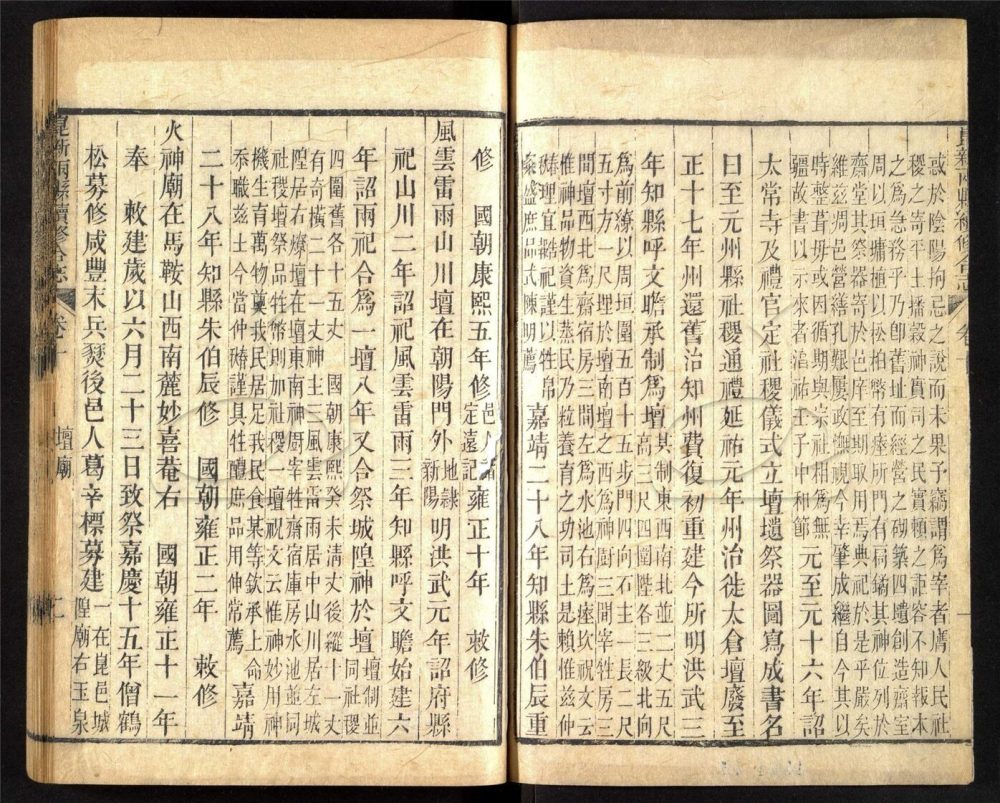 惑於陰陽拘忌之說而未果予竊謂爲宰者膺人民社
稷之寄平土播穀神實司之民實賴之詎容不知報本
之爲急務乎乃卽舊址而經營之砌築四壝創造齋室
周以垣墉植以松柏幣有瘞所門有扃鐍其神位列於
齋堂其祭器寄於邑庠至期取用焉典祀於是乎嚴矣
維茲凋邑營繕孔艱屢政撫視今幸肇成繼自今其以
時整葺毋或因循期與宗社相爲無
疆故書以示來者淐祐壬子中和節
元至元十六年詔
太常寺及禮官定社稷儀式立壇壝祭器圖寫成書名
曰至元州縣社稷通禮延祐元年州治徙太倉壇廢至
正十七年州還舊治知州費復初重建今所明洪武三
年知縣呼文瞻承制爲壇
其制東西南北並二丈五尺
高三尺四圍陛各三級北向
爲前繚以周垣圍五百十五步門四向石主一長二尺
五寸方一尺埋於壇南之西爲神廚三間宰牲房三
間壇西北爲齋宿房三間左爲水池右爲瘞坎祝文云
惟神品物資生蒸民乃粒養育之功司土是賴惟茲仲
春秋理宜
祗祀謹以牲帛
粢盛庶品式陳明薦
嘉靖二十八年知縣朱伯辰重
修
國朝康熙五年修
邑人
定遠記
雍正十年
敕修
風雲雷雨山川壇在朝陽門外
地隸
新陽
明洪武元年詔府縣
祀山川二年詔祀風雲雷雨三年知縣呼文瞻始建六
年詔兩祀合爲一壇八年又合祭城隍神於壇
壇制並
同社稷
四圍舊各十五丈
國朝康熙癸未淸丈後縱十一丈
有奇橫二十一丈神主三風雲雷雨居中山川居左城
隍居右燎壇在壇東南神廚宰牲齋宿庫房水池並同
社稷壇祭品牲幣則加社稷一壇祝文云惟神妙用神
機生育萬物奠我民居足我民食某等欽承上命
忝職茲土今當仲
謹具牲醴庶品用伸常薦
嘉靖
二十八年知縣朱伯辰修
國朝雍正二年
敕修
火神廟在馬鞍山西南麓妙喜菴右
國朝雍正十一年
奉
敕建歲以六月二十三日致祭嘉慶十五年僧鶴
松募修咸豐末兵燹後邑人葛辛標募建
一在崑邑城
隍廟右玉泉
昆新兩縣續修合志
卷十
壇廟